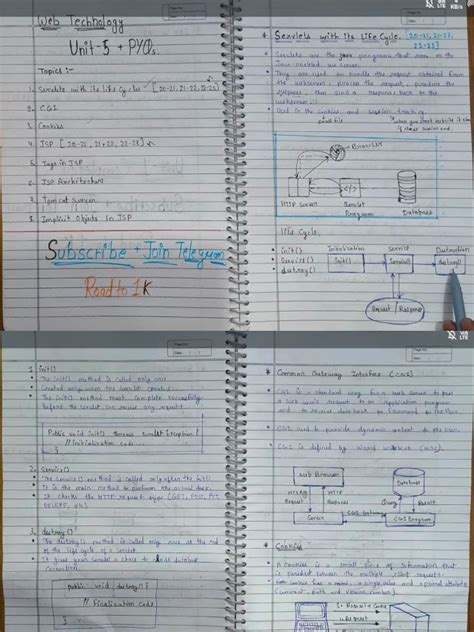 Web Technology
Unit-5 + PYQs.
Topics :-
1. Servlets with its Life Cycle [20-21, 21-22, 22-23]
2. CGI
3. Cookies
4. JSP [20-21, 21-22, 22-23]
5. Tags in JSP
6. JSP Architecture
7. Tomcat Server
8. Implicit Objects in JSP
Subscribe + Join Telegram
Road to 1K
* Servlets with its Life Cycle. [20-21, 21-22,
22-23]
Servlets are the java programs that run on the
Java enabled
They are used to handle the request obtained
from the
webserver, process the request, produce the
response, then send a response back to the
webserver.
Used in the cookies and session tracking.
Browser
HTTP Server
</>
Servlet
Program
Database
Life Cycle
init()
Service()
destroy()
Initialization
Service
Destruction
Init()
Service()
destroy()
Request / Response
1. init()
The init() method is called only once
Created only when the servlet created.
The init() method must complete successfully
before the servlet can receive any request.
Public void init() throws servlet Exception {
// Initialization code...
2. Service()
The service() method is called only after the init()
It is the main method to perform the actual task.
It checks the HTTP request type (GET, POST, PUT
DELETE, etc)
3. destroy()
The destroy() method is called only once at the end
of the life cycle of a servlet.
It gives your servlet a chance to close database
connection.
public void destroy() {
// Finalization code
* Common Gateway Interface (CGI)
CGI is a standard way for a web server to pass
a web user's request to an application program
and to receive data back to forward to the user.
CGI used to provide dynamic content to the user.
CGI is defined by
Web Browser
Database
HTTP
Request
HTTP
Response
Query
Result
Server
CGI Gateway
CGI Program
* Cookies
A cookies is a small piece of information that
is persisted between the multiple client requests.
cookie has a name, a single value and optional attributes
(comment, path and version number)
1. Request